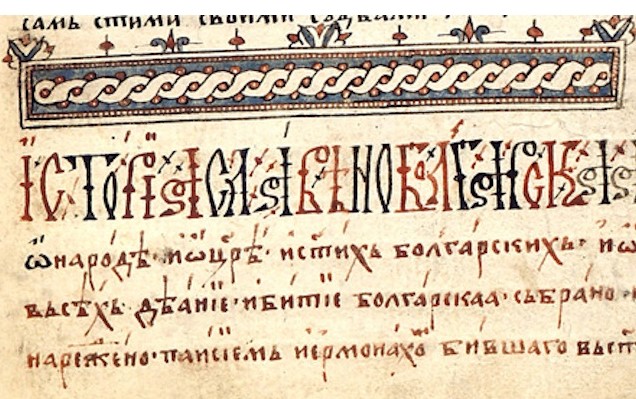 самь стими своими содѣали
Їсторїѧ славѣноболгарскаѧ
ѡ народѣ и ѡ царѣ истихь болгарскихь и ѡ
въсѣхь дѣанїе и битїе болгарскаа събрано
нареѫено паисїемь їермонахѡ бившаго